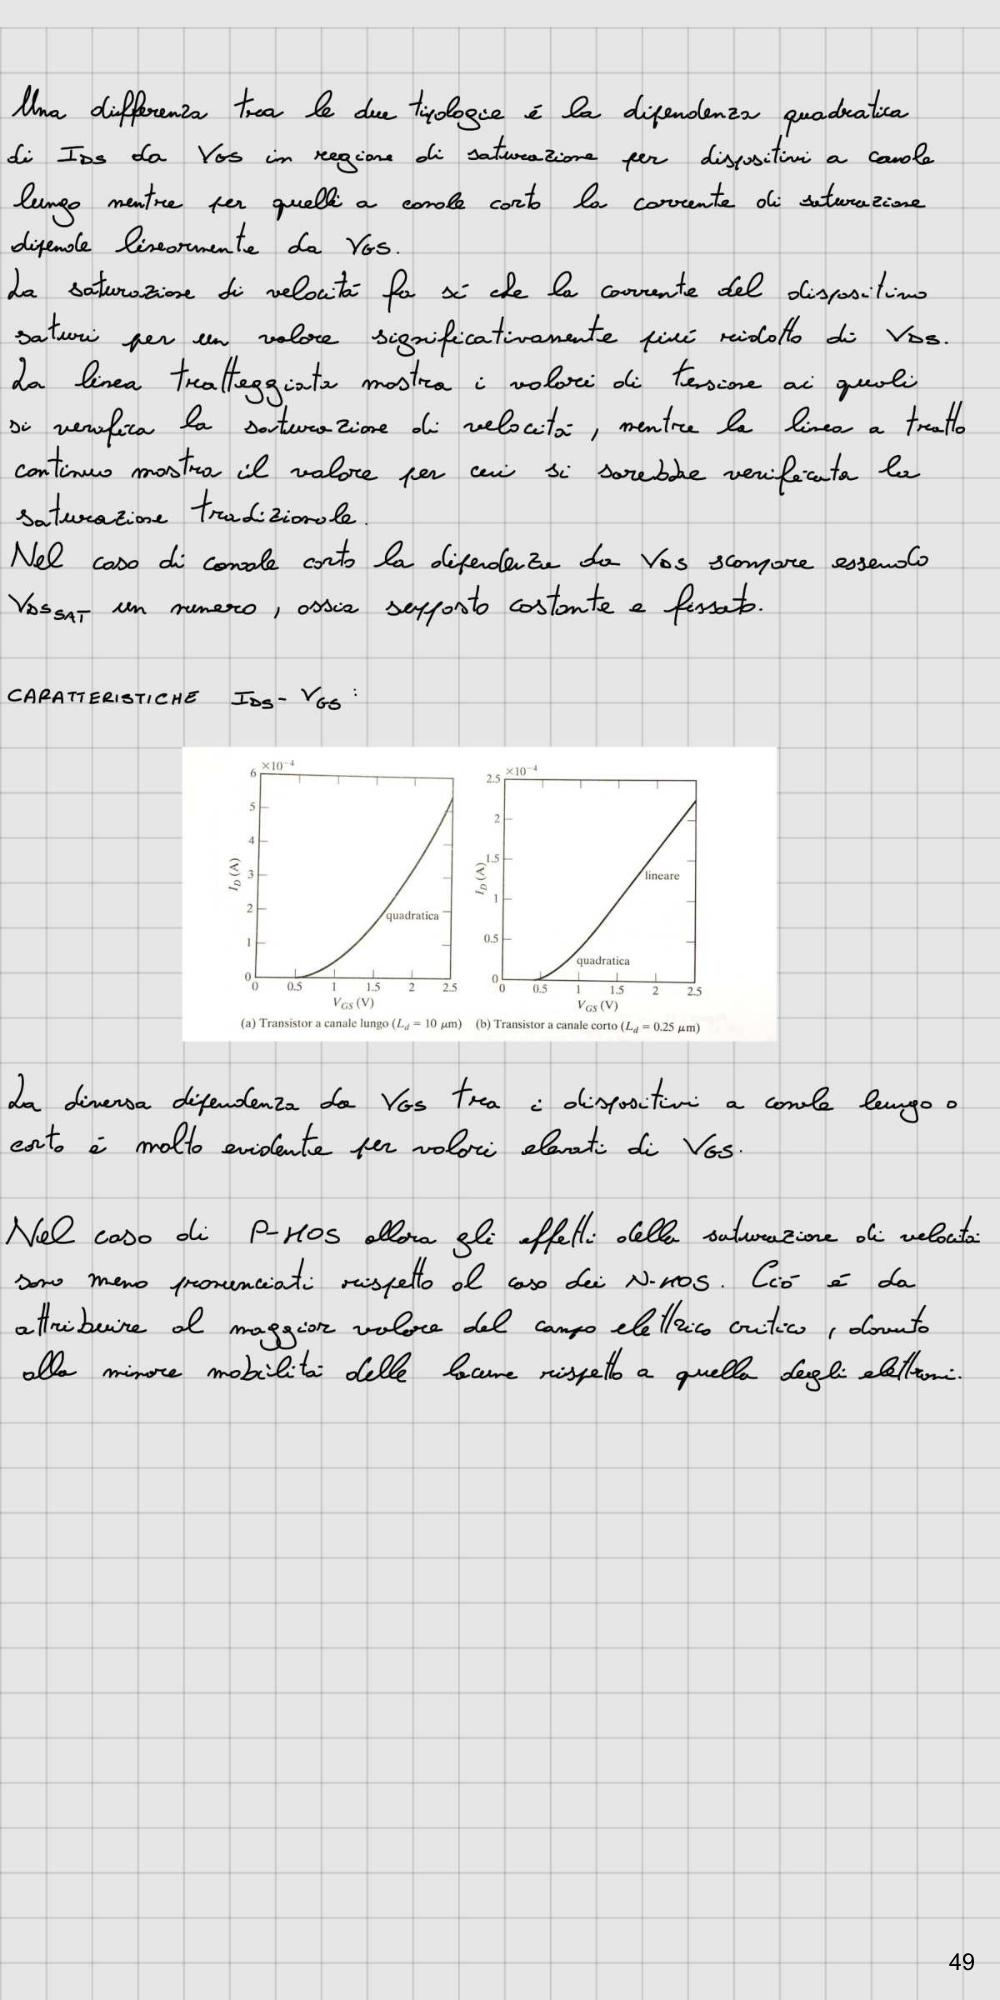 Una differenza tra le due tipologie é la dipendenza quadratica
di IDS da VGS in regione di saturazione per dispositivi a canale
lungo mentre per quelli a canale corto la corrente di saturazione
dipende linearmente da VGS.
La saturazione di velocitá fa sí che la corrente del dispositivo
saturi per un valore significativamente piú ridotto di VDS.
La linea tratteggiata mostra i valori di tensione ai quali
si verifica la saturazione di velocitá, mentre la linea a tratto
continuo mostra il valore per cui si sarebbe verificata la
saturazione tradizionale.
Nel caso di canale corto la dipendenza da VDS scompare essendo
VDSSAT un numero, ossia supposto costante e fissato.
CARATTERISTICHE IDS-VGS:
×10⁻⁴
6
5
4
3
2
1
0
ID (A)
quadratica
0 0.5 1 1.5 2 2.5
VGS (V)
(a) Transistor a canale lungo (Ld = 10 μm)
×10⁻⁴
2.5
2
1.5
1
0.5
0
ID (A)
lineare
quadratica
0 0.5 1 1.5 2 2.5
VGS (V)
(b) Transistor a canale corto (Ld = 0.25 μm)
La diversa dipendenza da VGS tra i dispositivi a canale lungo o
corto é molto evidente per valori elevati di VGS.
Nel caso di P-MOS allora gli effetti della saturazione di velocitá
sono meno pronunciati rispetto al caso dei N-MOS. Ció é da
attribuire al maggior valore del campo elettrico critico, dovuto
alla minore mobilitá delle lacune rispetto a quella degli elettroni.
49